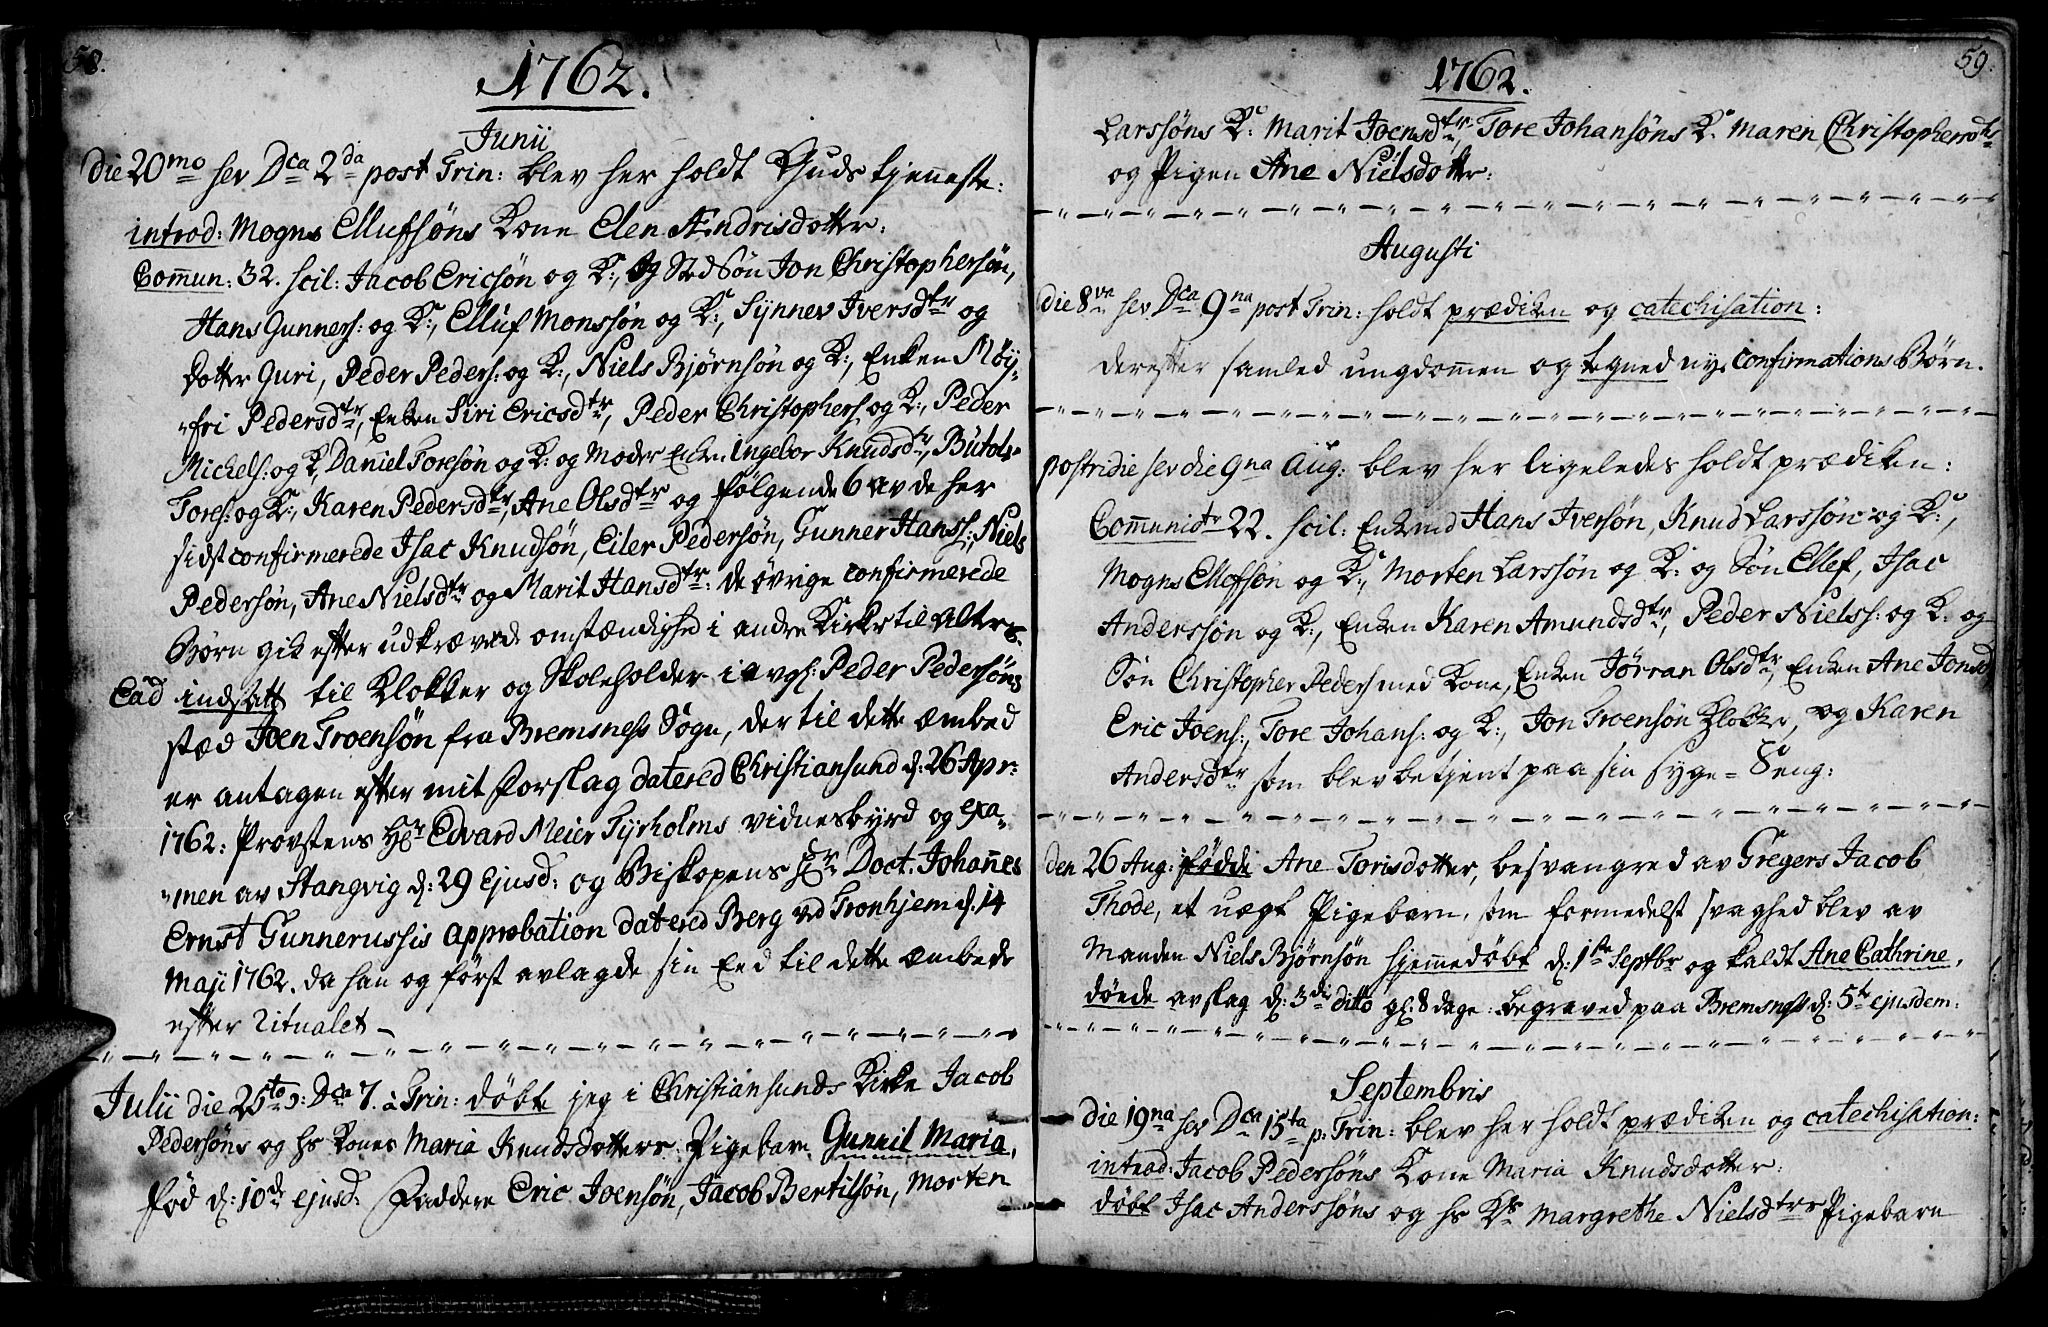 58.
1762.
Junii
Die 20mo sev Dca 2da post Trin: blev her holdt Guds tjeneste:
introd: Mogns Ellufsøns Kone Elen Ændrisdotter:
Commun: 32. scil: Jacob Ericsøn og K:, og Sted Søn Jon Christophersøn,
Hans Gunners: og K:, Elluf Monssøn og K:, Synnev Iversdtr og
dotter Guri, Peder Peders: og K:, Niels Bjørnsøn og K:, Enken Møy-
"fri Pedersdtr, Enken Siri Ericsdtr, Peder Christophers: og K:, Peder
Michels: og K, Daniel Toresøn og K: og Moder Enken Ingebor Knudsdtr, Butols-
Tores: og K:, Karen Pedersdtr, Ane Olsdtr og følgende 6 av de her
sidst confirmerede Isac Knudsøn, Eiler Pedersøn, Gunner Hanss:, Niels
Pedersøn, Ane Nielsdtr og Marit Hansdtr: de øvrige confirmerede
Børn gik efter udkrævede omstændighed i andre Kirker til Alters.
Eād indsatt til Klokker og Skoleholder i avgl: Peder Pedersøns
stæd Joen Troensøn fra Bremsness Sogn, der til dette æmbed
er antagen efter mit forslag datered Christiansund d: 26 Apr:
1762: Provstens Hr Edvard Meier Tyrholms vidnesbyrd og exa-
"men av Stangvig d: 29 Ejusd: og Biskopens Hr Doct. Johannes
Ernst Gunnerussis approbation datered Berg ved Tronhjem d. 14
Maji 1762. da han og først avlagde sin Eed til dette æmbede
efter Ritualet –
Julii die 25to ɔ: Dca 7. à Trin: døbt jeg i Christiansunds Kirke Jacob
Pedersøns og hs Kones Maria Knudsdotters Pigebarn Gunnil Maria,
fød d: 10de ejusd: Faddere Eric Joensøn, Jacob Bertilsøn, Morten
59.
1762.
Larssøns K: Marit Joensdtr Tore Johansøns K: Maren Christophersdtr
og Pigen Ane Nielsdotter:
Augusti
die 8va sev Dca 9na post Trin: holdt prædiken og catechisation:
derefter samled ungdommen og tegned nye Confirmations Børn.
postridie sev die 9na Aug: blev her ligeledes holdt prædiken:
Communictr 22. scil: Enkmd Hans Iversøn, Knud Larssøn og K:,
Mogns Ellefsøn og K:, Morten Larssøn og K: og Søn Ellef, Isac
Anderssøn og K:, Enken Karen Amundsdtr, Peder Nielss: og K: og
Søn Christopher Peders med Kone, Enken Jørran Olsdtr, Enken Ane Jonsd
Eric Joens:, Tore Johans: og K:, Jon Troensøn Klokker, og Karen
Andersdtr som blev betjent paa sin syge-Seng:
den 26 Aug: fødde Ane Torisdotter, besvangred av Gregers Jacob
Thode, et uægt Pigebarn, som formedelst svaghed blev av
Manden Niels Bjørnsøn hjemmedøbt d: 1ste Septbr og kaldt Ane Cathrine,
døede avslag d: 3die ditto gl: 8 dage: begraved paa Bremsness d: 5te ejusdem:
Septembris
die 19na sev Dca 15ta p: Trin: blev her holdt prædiken og catechisation:
introd: Jacob Pedersøns Kone Maria Knudsdotter:
døbt Isac Anderssøns og hs Ks Margrethe Nielsdtrs Pigebarn